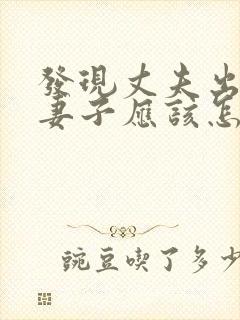 發現丈夫出
妻子應該怎
豌豆喫了多少